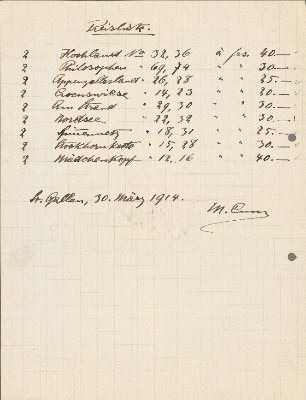 Preisliste.
2 Hochland No 32, 36 à frs. 40.—
2 Philosophen " 69, 74 " " 30.—
2 Appenzellerland " 26, 28 " " 25.—
2 " 14, 23 " " 30.—
2 Am Strand " 29, 30 " " 30.—
2 Nordsee " 22, 32 " " 30.—
2 Spinnennetz " 18, 31 " " 25.—
2 " 15, 28 " " 30.—
2 Mädchenkopf " 12, 16 " " 40.—
St. Gallen, 30. März 1914.
M. Cunz